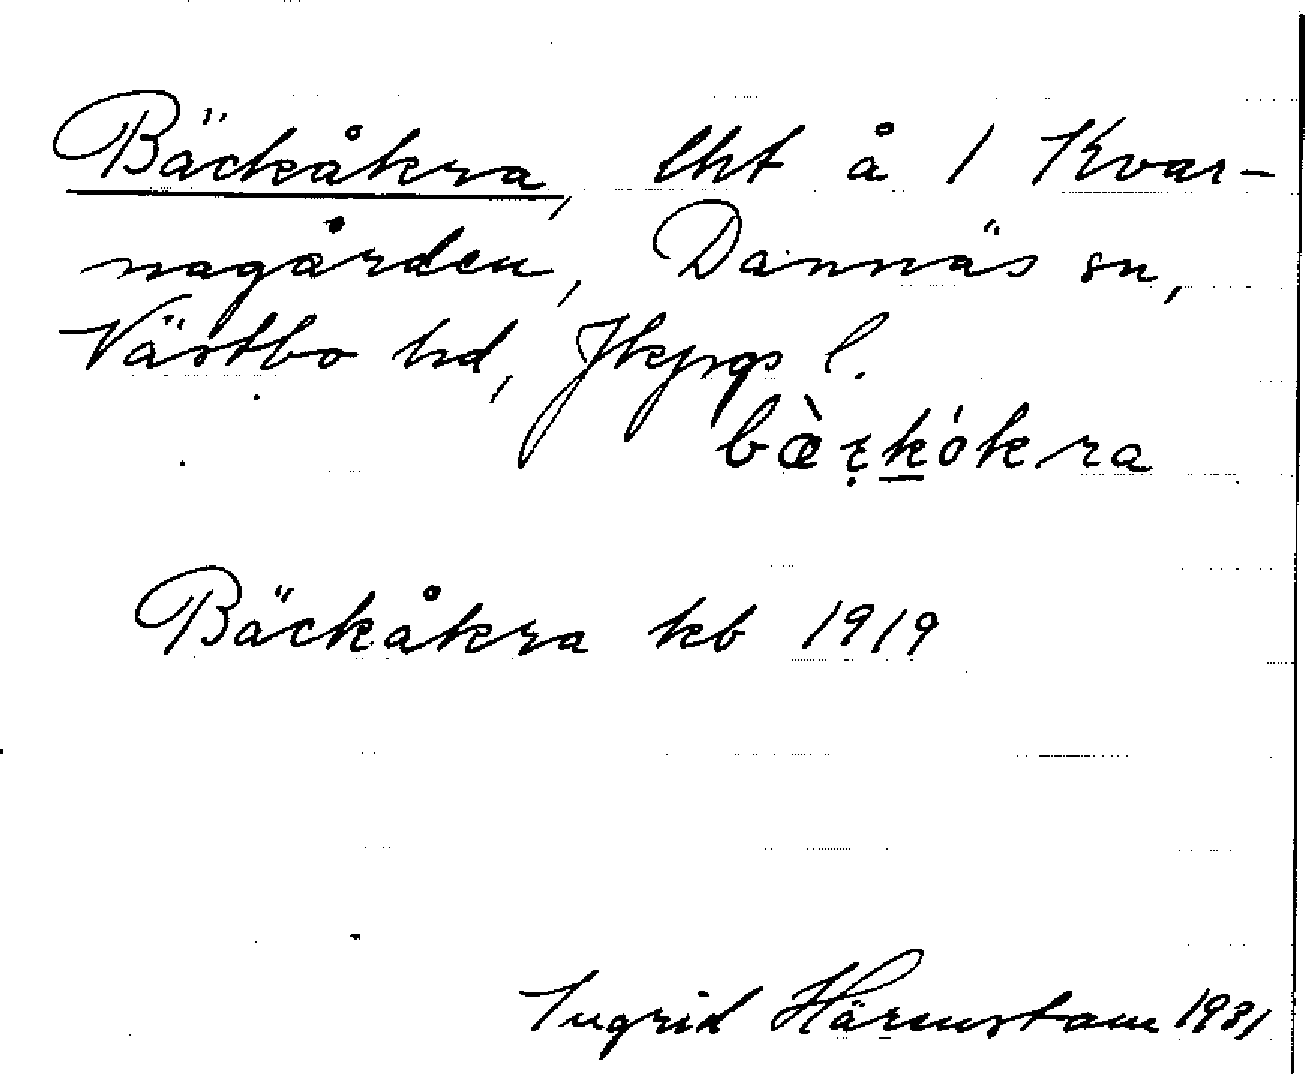 Bäckåkra, lht å 1 Kvar-
nagården, Dannäs sn,
Västbo hd, Jkpgs l.
Bäckåkra kb 1919
Ingrid Härenstam 1981